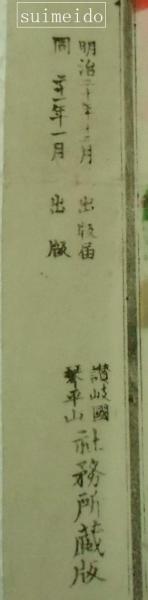 suimeido
明治二十年十二月 出版届
同 二十一年一月 出版
讃岐國
琴平山
社務所蔵版